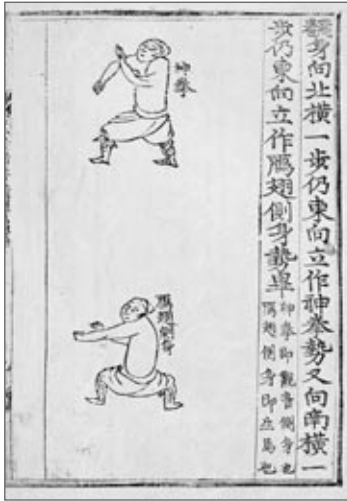 飜身向北橫一步仍東向立作神拳勢又向南橫一
步仍東向立作鴈翅側身勢畢
神拳即觀音側身也
鴈翅側身即也
神拳
鴈翅側身